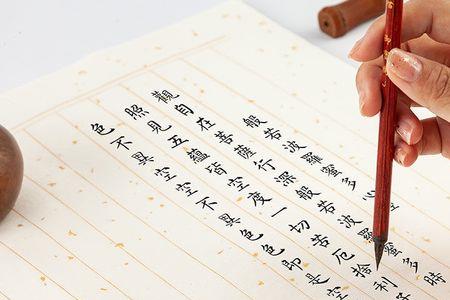 般若波羅蜜多心
觀自在菩薩行深般若波羅蜜多時
照見五蘊皆空度一切苦厄捨利子
色不異空空不異色色即是空